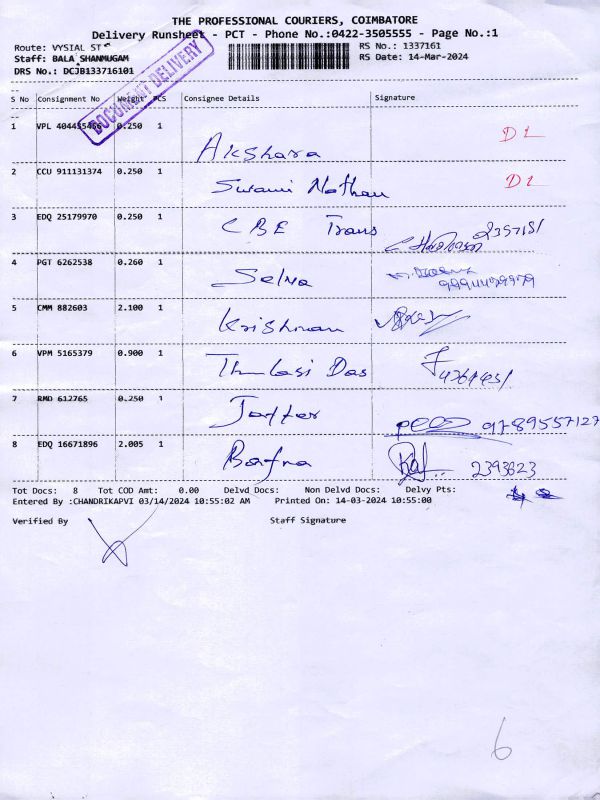 THE PROFESSIONAL COURIERS, COIMBATORE
Delivery Runsheet - PCT - Phone No.:0422-3505555 - Page No.:1
Route: VYSIAL ST
RS No.: 1337161
Staff: BALA SHANMUGAM
RS Date: 14-Mar-2024
DRS No.: DCJB133716101
DOCUMENT DELIVERY
S No Consignment No Weight PCS Consignee Details Signature
1 VPL 404435466 0.250 1 Akshara DL
2 CCU 911131374 0.250 1 Swami Nathan DL
3 EDQ 25179970 0.250 1 CBE Trans
4 PGT 6262538 0.260 1 Selva
5 CMM 882603 2.100 1 Krishnan
6 VPM 5165379 0.900 1 Thulasi Das
7 RMD 612765 0.250 1 9789557127
8 EDQ 16671896 2.005 1 Bafna 2393623
Tot Docs: 8 Tot COD Amt: 0.00 Delvd Docs: Non Delvd Docs: Delvy Pts:
Entered By :CHANDRIKAPVI 03/14/2024 10:55:02 AM Printed On: 14-03-2024 10:55:00
Verified By Staff Signature
6